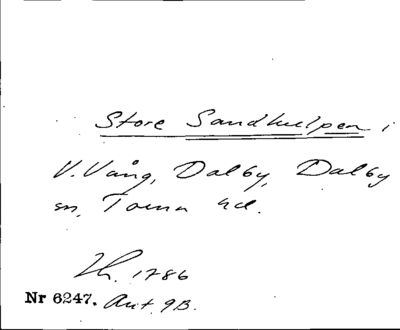 Store Sandhulpen i
V. Vång, Dalby, Dalby
sn, Torna hd.
Th. 1786
Nr 6247. Ant. 9B.